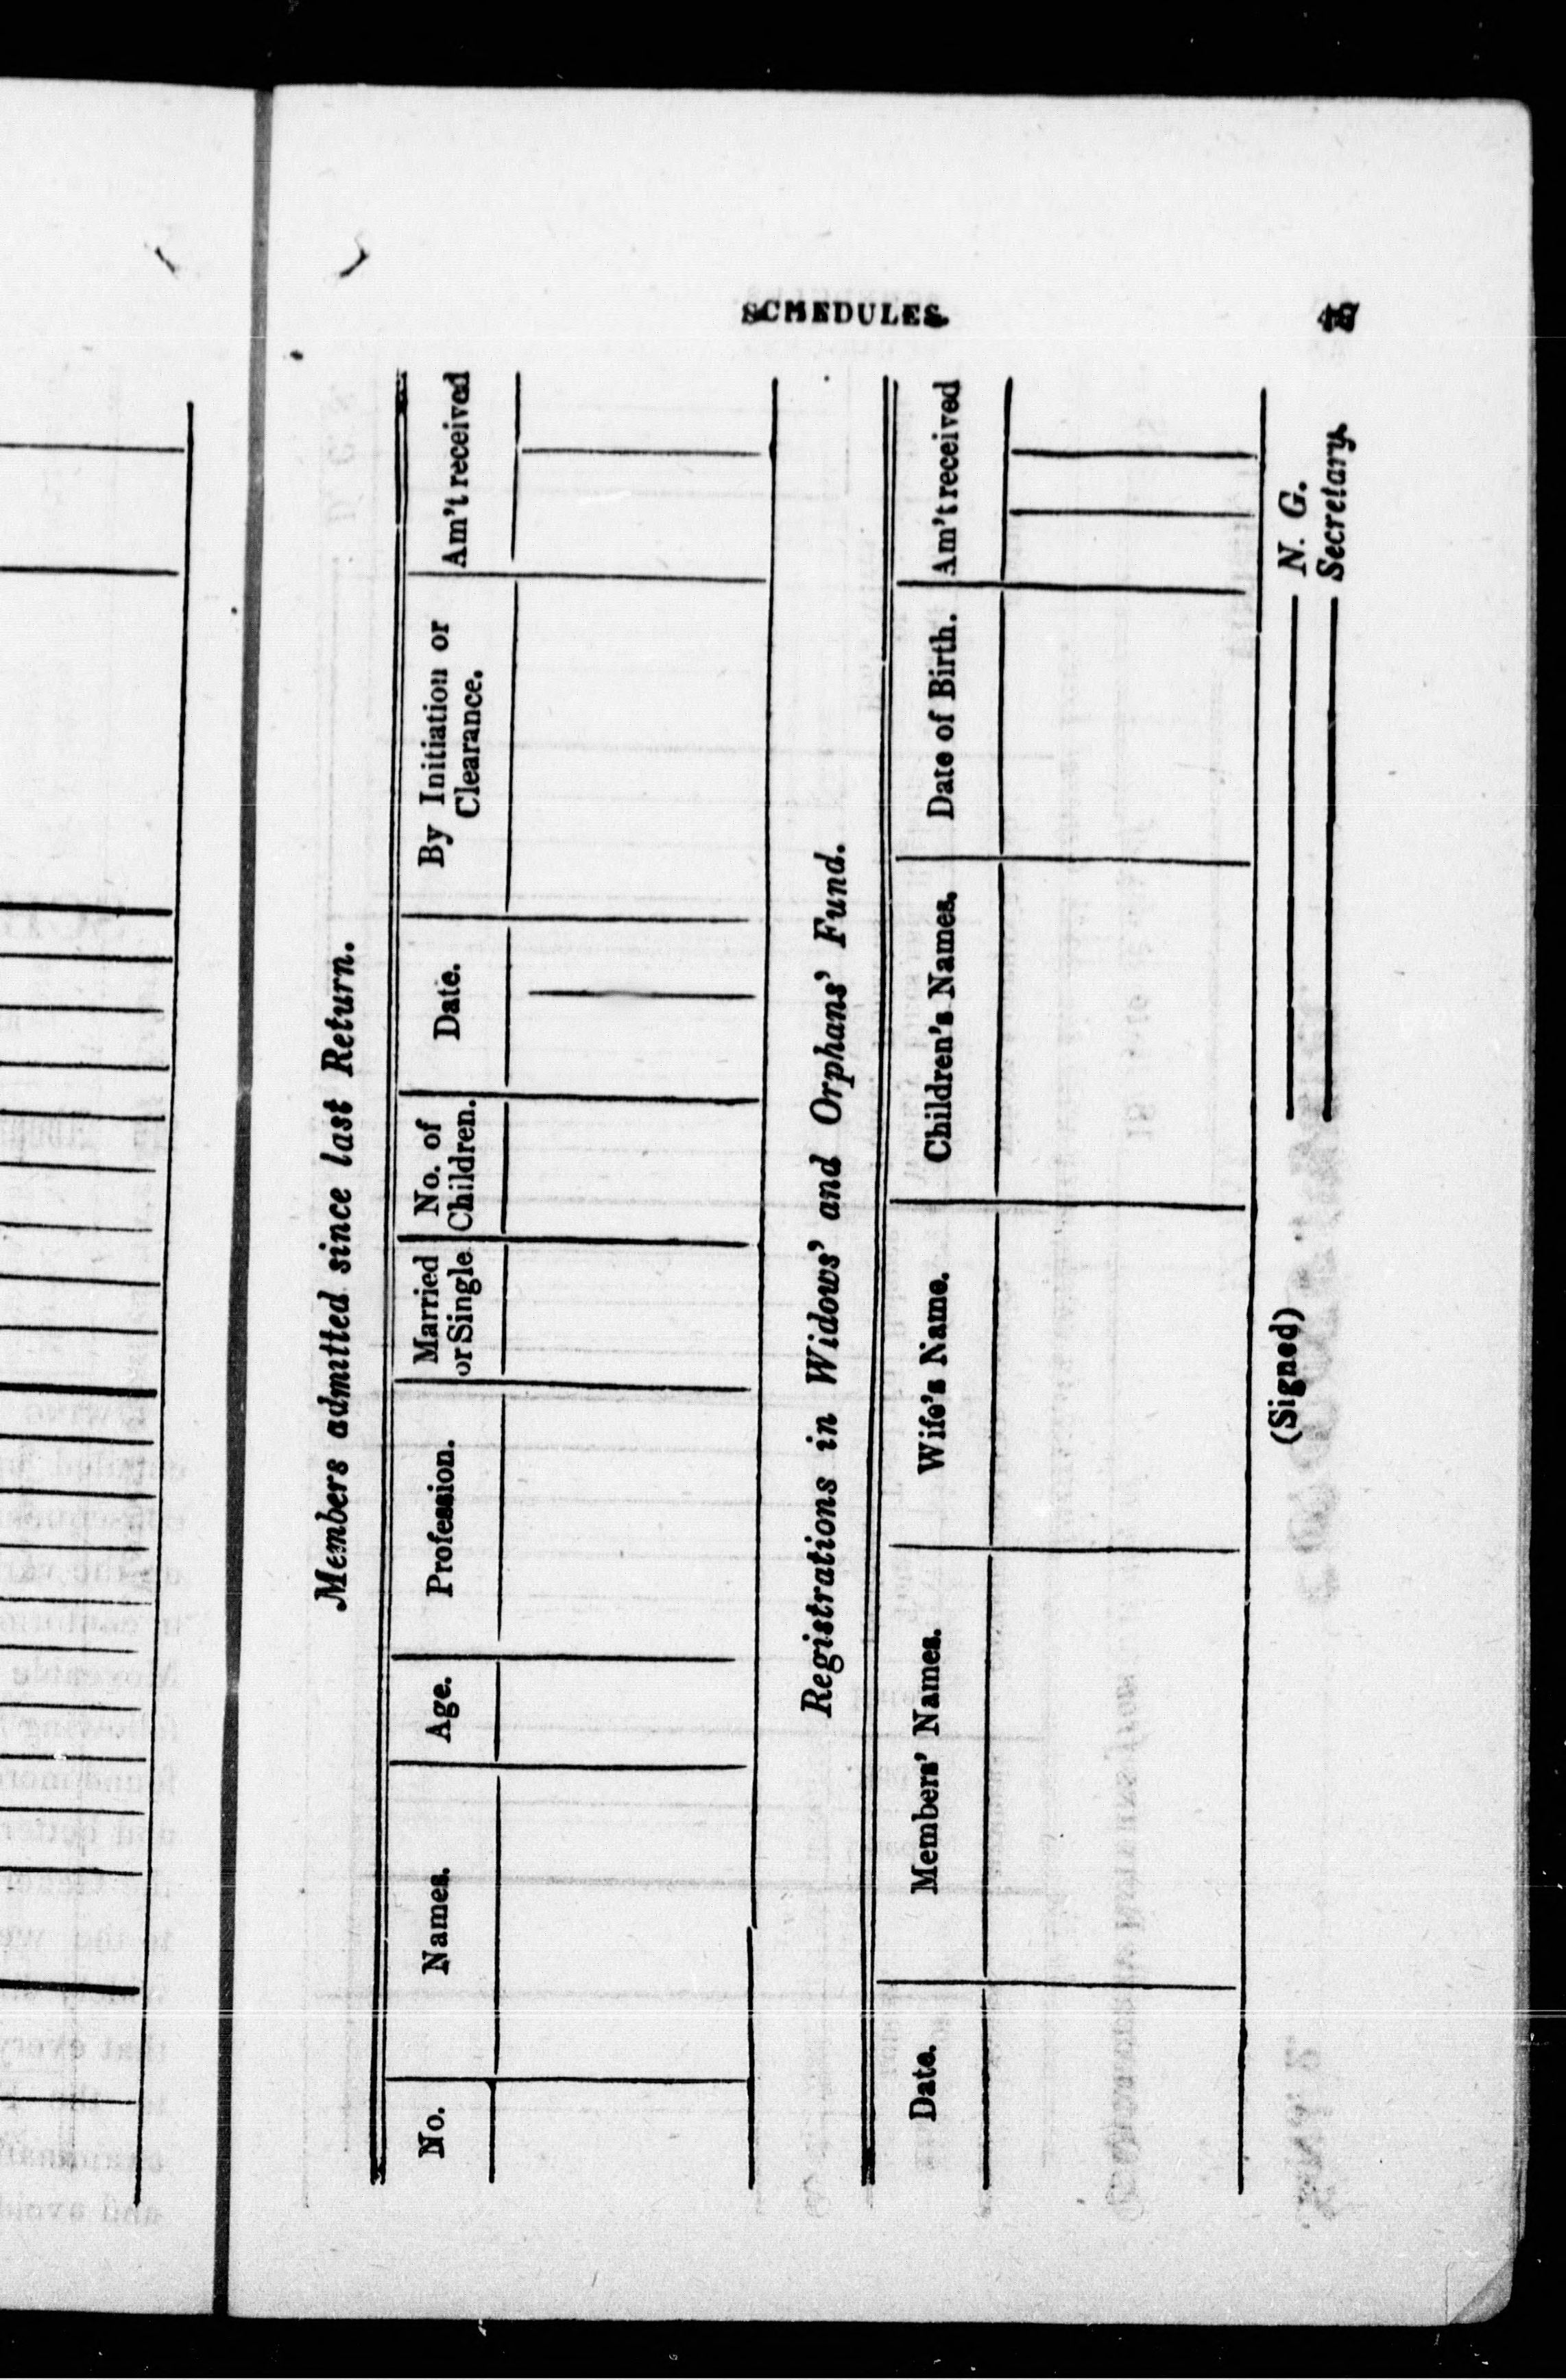 SCHEDULES.
Members admitted since last Return.
No. Names. Age. Profession. Married or Single No. of Children. Date. By Initiation or Clearance. Am't received
Registrations in Widows' and Orphans' Fund.
Date. Members' Names. Wife's Name. Children's Names. Date of Birth. Am't received
(Signed) N. G.
Secretary.